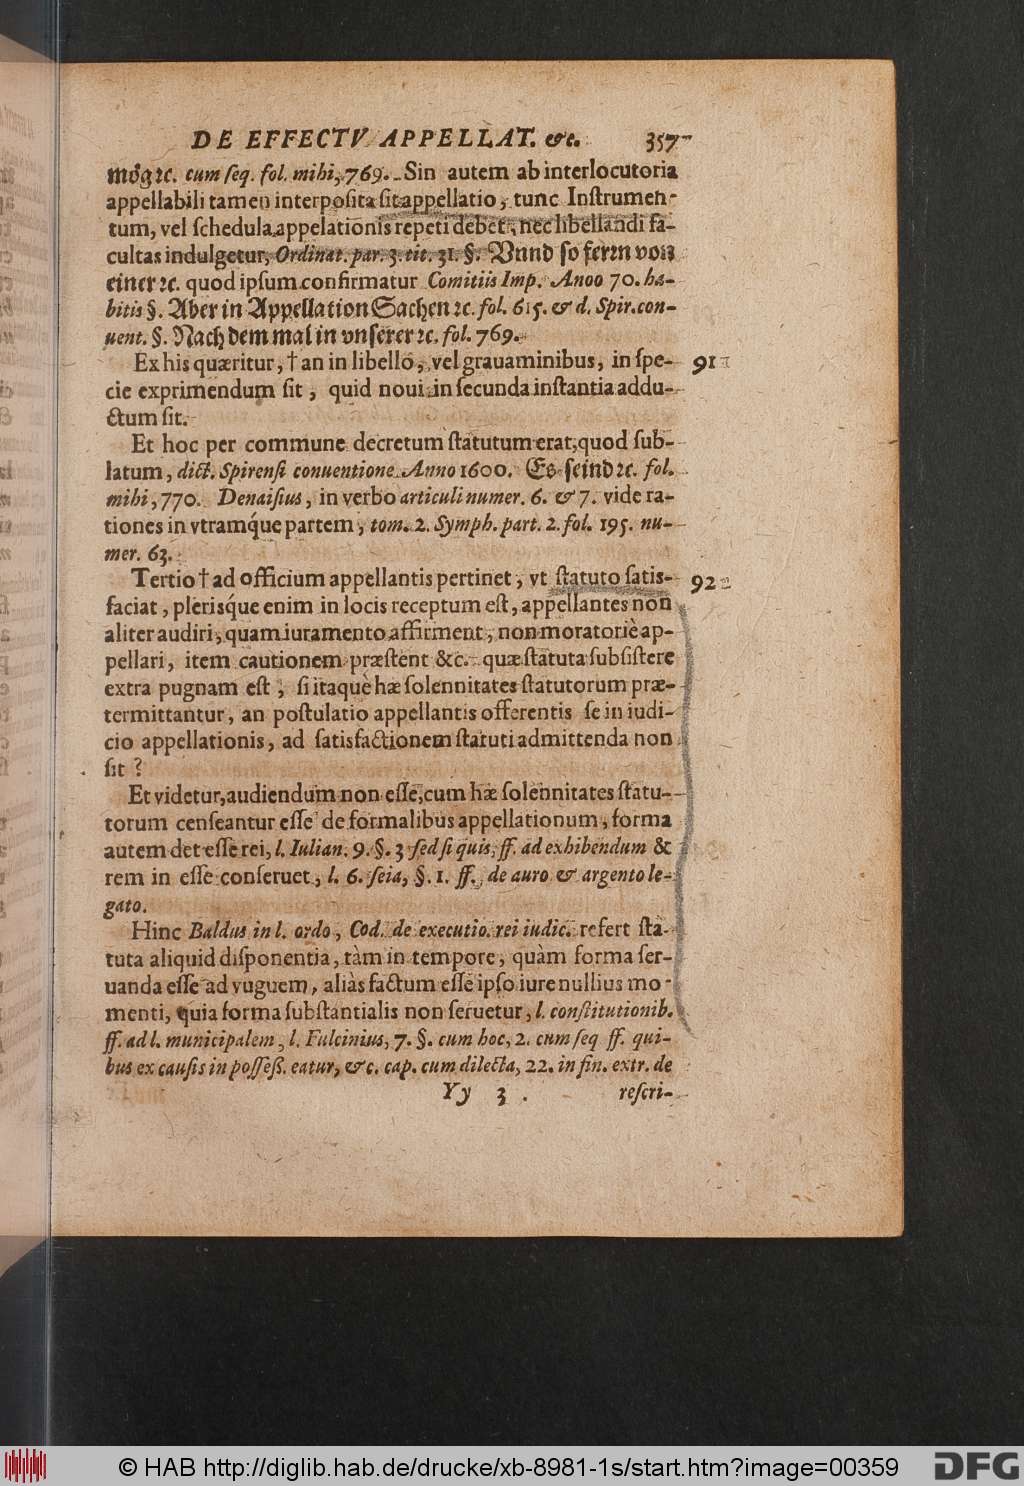 DE EFFECTV APPELLAT. &c. 357
mög ꝛc. cum ſeq. fol. mihi, 769. Sin autem ab interlocutoria
appellabili tamen interpoſita ſit appellatio, tunc Inſtrumen-
tum, vel ſchedula appelationis repeti debet, nec libellandi fa-
cultas indulgetur, Ordinat. par. 3. tit. 31. §. Vnnd ſo fern von
einer ꝛc. quod ipſum confirmatur Comitiis Imp. Anoo 70. ha-
bitis §. Aber in Appellation Sachen ꝛc. fol. 615. & d. Spir. con-
uent. §. Nach dem mal in vnſerer ꝛc. fol. 769.
Ex his quæritur, † an in libello, vel grauaminibus, in ſpe- 91
cie exprimendum ſit, quid noui in ſecunda inſtantia addu-
ctum ſit.
Et hoc per commune decretum ſtatutum erat, quod ſub-
latum, dict. Spirenſi conuentione Anno 1600. Es ſeind ꝛc. fol.
mihi, 770. Denaiſius, in verbo articuli numer. 6. & 7. vide ra-
tiones in vtramq́ue partem, tom. 2. Symph. part. 2. fol. 195. nu-
mer. 63.
Tertio † ad officium appellantis pertinet, vt ſtatuto ſatis- 92
faciat, pleriſq́ue enim in locis receptum eſt, appellantes non
aliter audiri, quam iuramento affirment, non moratoriè ap-
pellari, item cautionem præſtent &c. quæ ſtatuta ſubſiſtere
extra pugnam eſt, ſi itaquè hæ ſolennitates ſtatutorum præ-
termittantur, an poſtulatio appellantis offerentis ſe in iudi-
cio appellationis, ad ſatisfactionem ſtatuti admittenda non
ſit?
Et videtur, audiendum non eſſe, cum hæ ſolennitates ſtatu-
torum cenſeantur eſſe de formalibus appellationum, forma
autem det eſſe rei, l. Iulian. 9. §. 3 ſed ſi quis, ff. ad exhibendum &
rem in eſſe conſeruet, l. 6. ſeia, §. 1. ff. de auro & argento le-
gato.
Hinc Baldus in l. ordo, Cod. de executio. rei iudic. refert ſta-
tuta aliquid diſponentia, tàm in tempore, quàm forma ſer-
uanda eſſe ad vuguem, aliàs factum eſſe ipſo iure nullius mo-
menti, quia forma ſubſtantialis non ſeruetur, l. conſtitutionib.
ff. ad l. municipalem, l. Fulcinius, 7. §. cum hoc, 2. cum ſeq ff. qui-
bus ex cauſis in poſſeſſ. eatur, &c. cap. cum dilecta, 22. in fin. extr. de
Yy 3 reſcri-
© HAB http://diglib.hab.de/drucke/xb-8981-1s/start.htm?image=00359 DFG